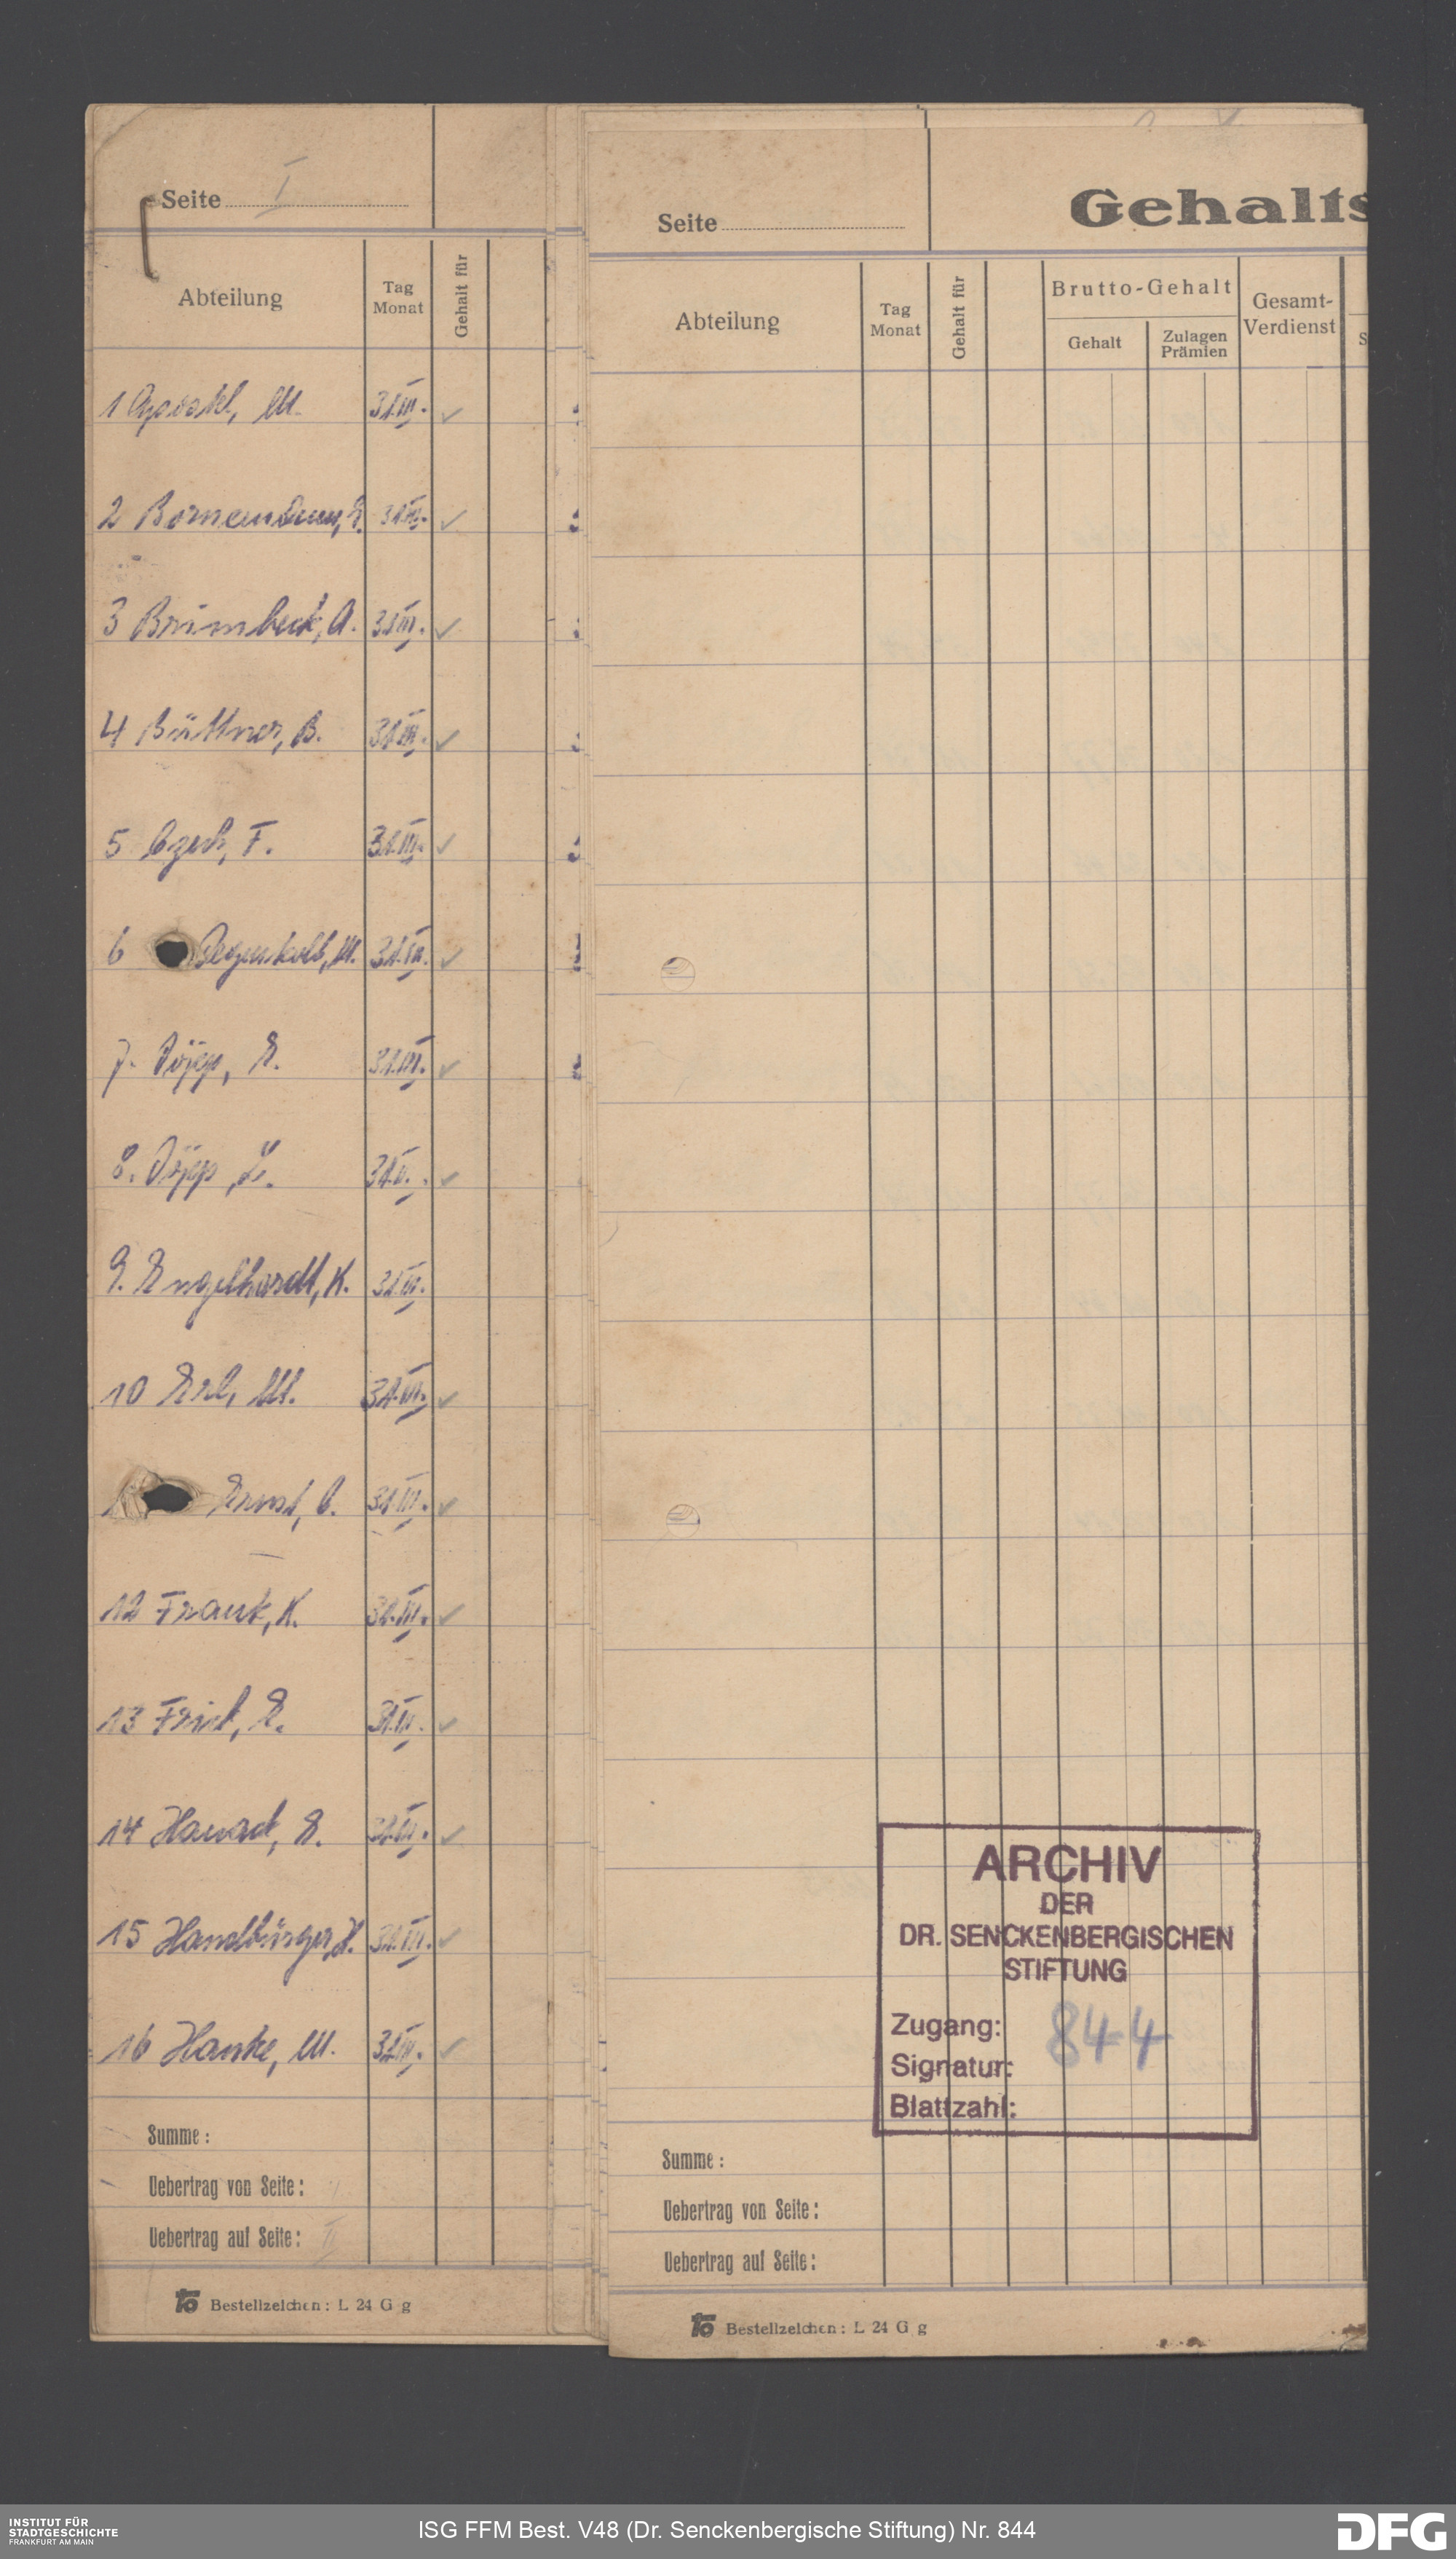 Seite I
Abteilung
Tag
Monat
Gehalt für
1 Apostel, M. 31.III. ✓
2 Bornemann, E. 31.III. ✓
3 Brümbeck, A. 31.III. ✓
4 Büttner, B. 31.III. ✓
5 Czech, F. 31.III. ✓
6 Degenkolb, M. 31.III. ✓
7. Döpp, E. 31.III. ✓
8. Döpp, L. 31. ✓
9. Engelhardt, K. 31.III.
10 Erl, M. 31.III. ✓
1 Ernst, C. 31.III. ✓
12 Frank, K. 31.III. ✓
13 E. 31.III. ✓
14 E. 31.III. ✓
15 Handbürger, H. 31.III. ✓
16 Hanke, M. 31.III. ✓
Summe :
Uebertrag von Seite :
Uebertrag auf Seite : II
to Bestellzeichen : L 24 G g
Seite
Gehalts
Abteilung
Tag
Monat
Gehalt für
Brutto-Gehalt
Gehalt
Zulagen
Prämien
Gesamt-
Verdienst
S
ARCHIV
DER
DR. SENCKENBERGISCHEN
STIFTUNG
Zugang:
Signatur: 844
Blattzahl:
Summe :
Uebertrag von Seite :
Uebertrag auf Seite :
to Bestellzeichen : L 24 G g
INSTITUT FÜR
STADTGESCHICHTE
FRANKFURT AM MAIN
ISG FFM Best. V48 (Dr. Senckenbergische Stiftung) Nr. 844
DFG